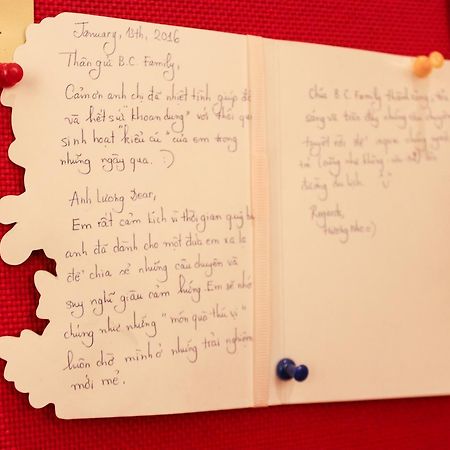 January, 13th, 2016
Thân gửi B.C. Family,
Cảm ơn anh chị đã nhiệt tình giúp đỡ
và hết sức "khoan dung" với thói que
sinh hoạt "kiểu cú" của em trong
những ngày qua. :)
Anh Lương Dear,
Em rất cảm kích vì thời gian quý bá
anh đã dành cho một đứa em xa lạ
để chia sẻ những câu chuyện và
suy nghĩ giàu cảm hứng. Em sẽ nhớ
chúng như những "món quà thú vị"
luôn chờ mình ở những trải nghiệm
mới mẻ.
Chúc B.C. Family thành công,
sống và tràn đầy những câu chuyện
tuyệt vời để người
ta cũng như không
đường du lịch.
Regards,